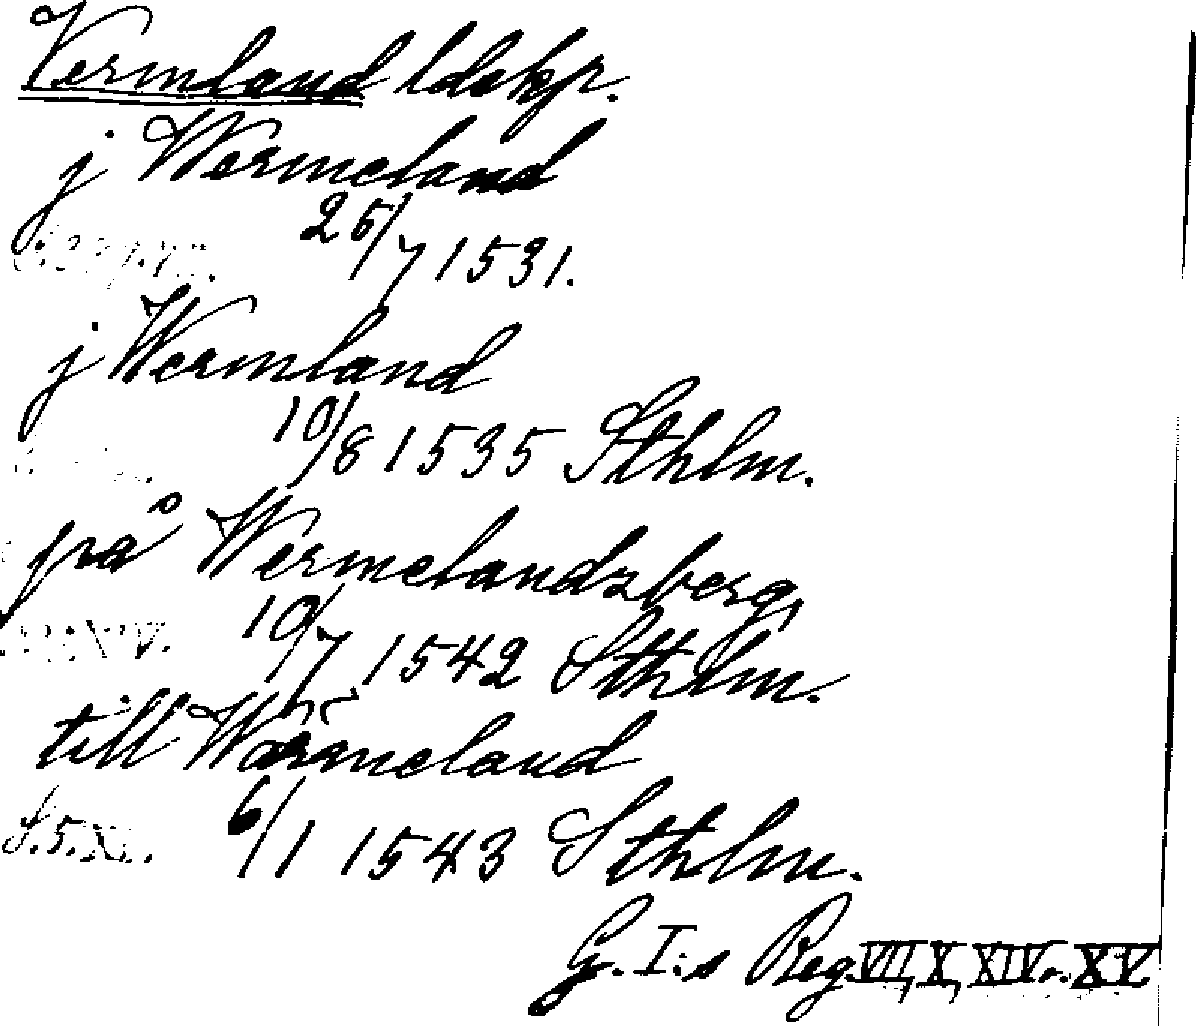 Vermland ldskp.
j Wermeland
26/7 1531.
j Wermland
10/8 1535 Sthlm.
på Wermelandzberg,
10/7 1542 Sthlm.
till Wärmeland
S. 5. XV. 6/1 1543 Sthlm.
G. I:s Reg. VII, X, XIV o. XV